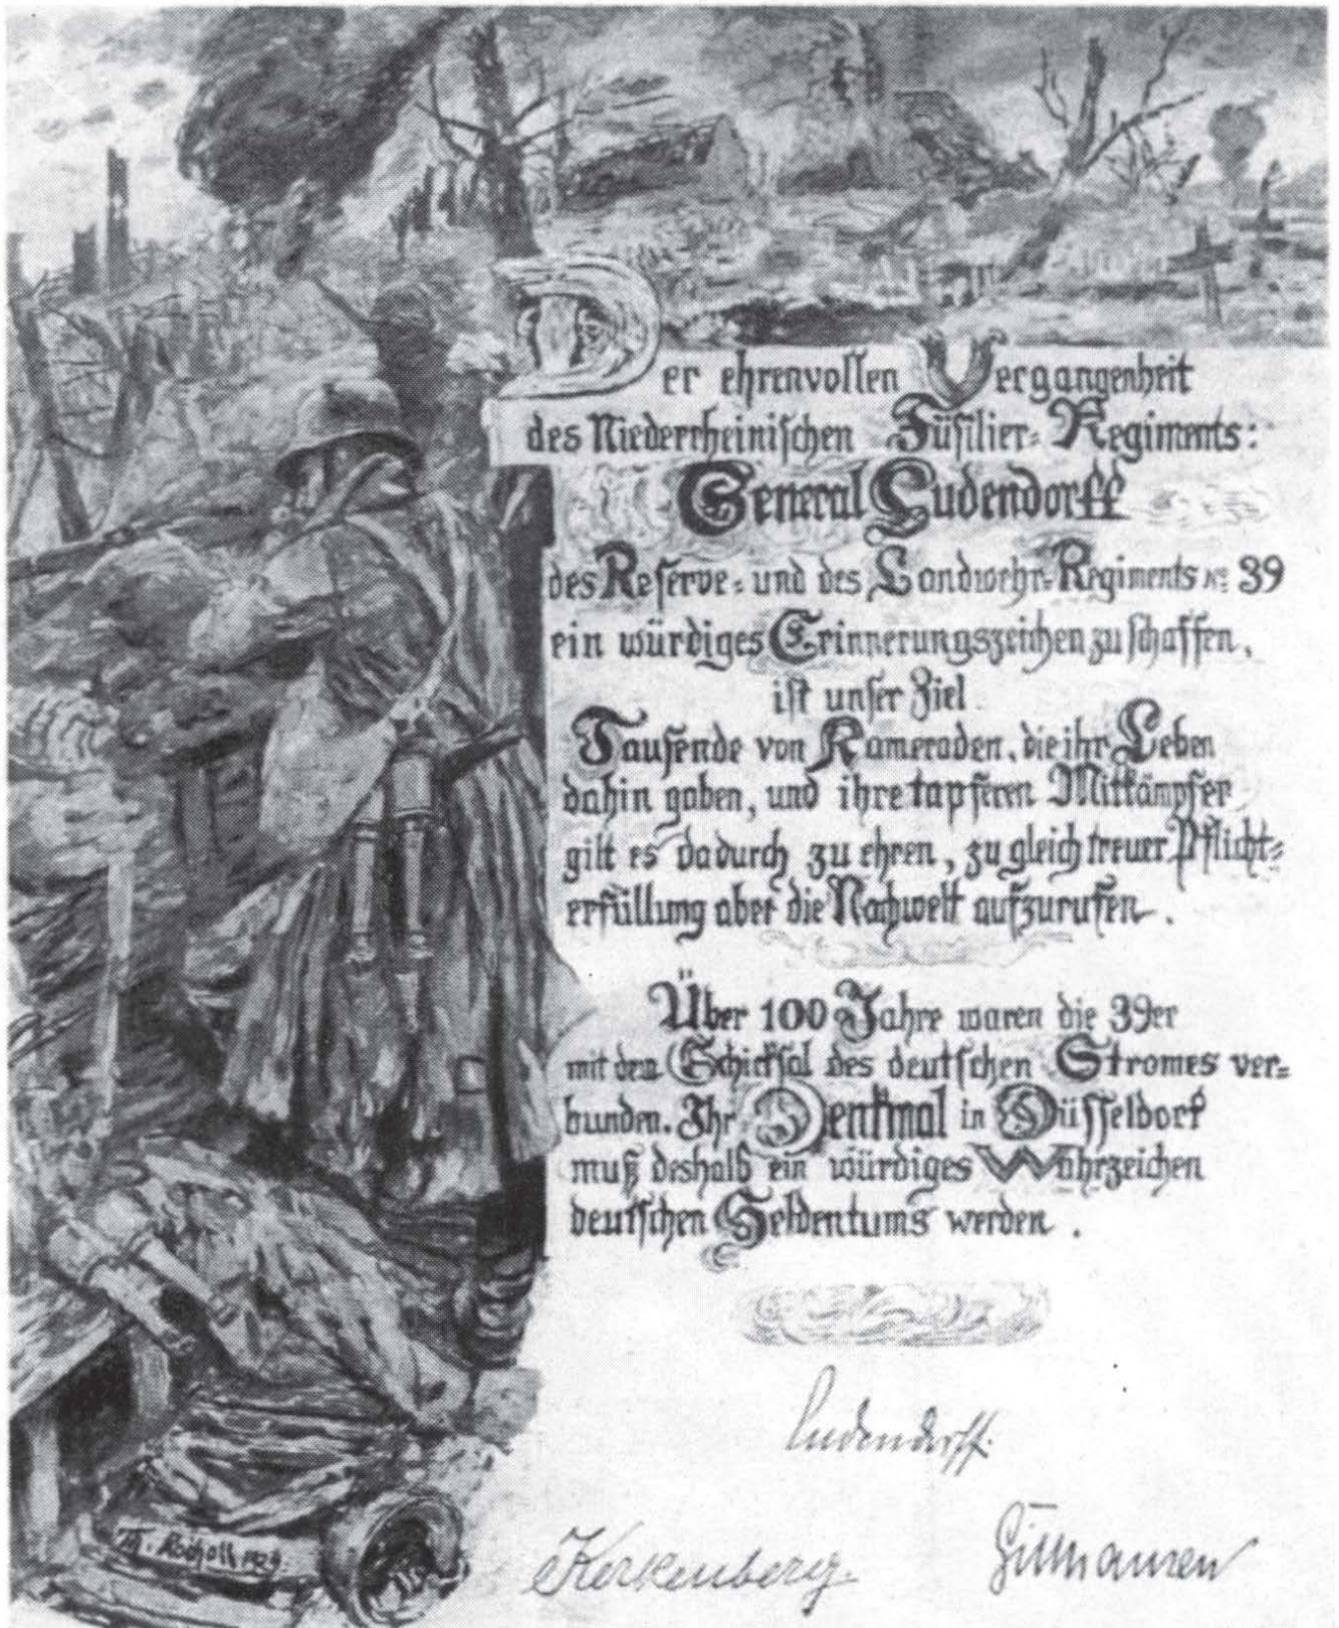 Der ehrenvollen Vergangenheit
des Niederrheinischen Füsilier=Regiments:
General Ludendorff
des Reserve= und des Landwehr=Regiments No 39
ein würdiges Erinnerungszeichen zu schaffen,
ist unser Ziel.
Tausende von Kameraden, die ihr Leben
dahin gaben, und ihre tapferen Mitkämpfer
gilt es dadurch zu ehren, zu gleich treuer Pflicht=
erfüllung aber die Nachwelt aufzurufen.
Über 100 Jahre waren die 39er
mit dem Schicksal des deutschen Stromes ver=
bunden. Ihr Denkmal in Düsseldorf
muß deshalb ein würdiges Wahrzeichen
deutschen Heldentums werden.
Ludendorff.
Kerkenberg.
Th. Rocholl